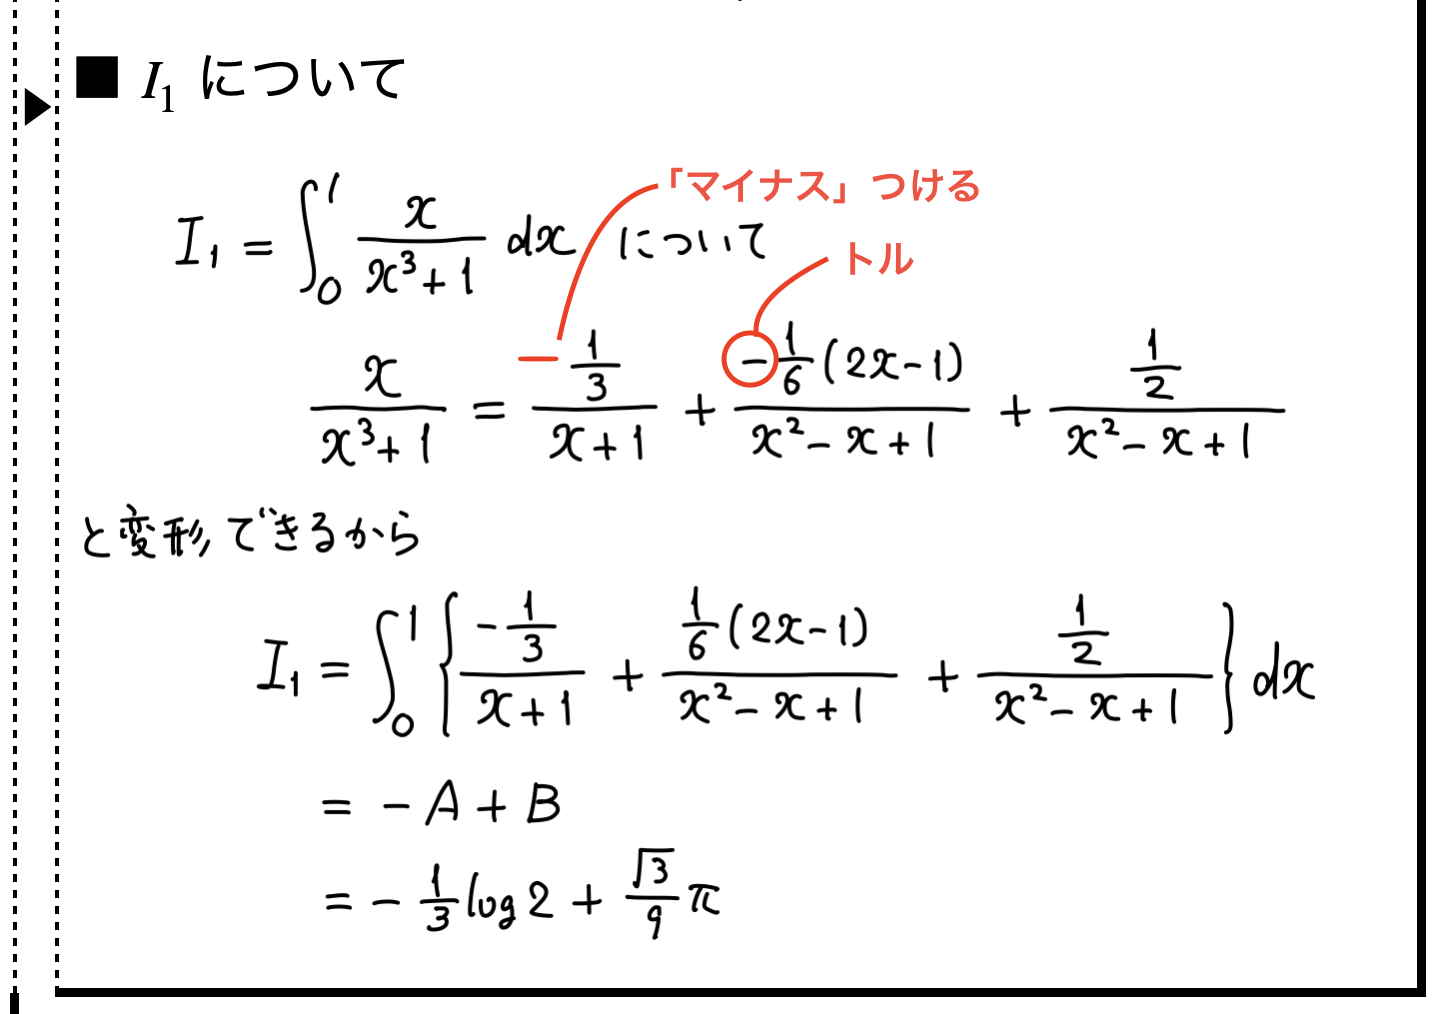 ■ I₁ について
「マイナス」つける
I₁ = ∫₀¹ x/(x³+1) dx について
トル
x/(x³+1) = -(1/3)/(x+1) + -(1/6)(2x-1)/(x²-x+1) + (1/2)/(x²-x+1)
と変形できるから
I₁ = ∫₀¹ { -(1/3)/(x+1) + (1/6)(2x-1)/(x²-x+1) + (1/2)/(x²-x+1) } dx
= -A + B
= -1/3 log 2 + √3/9 π